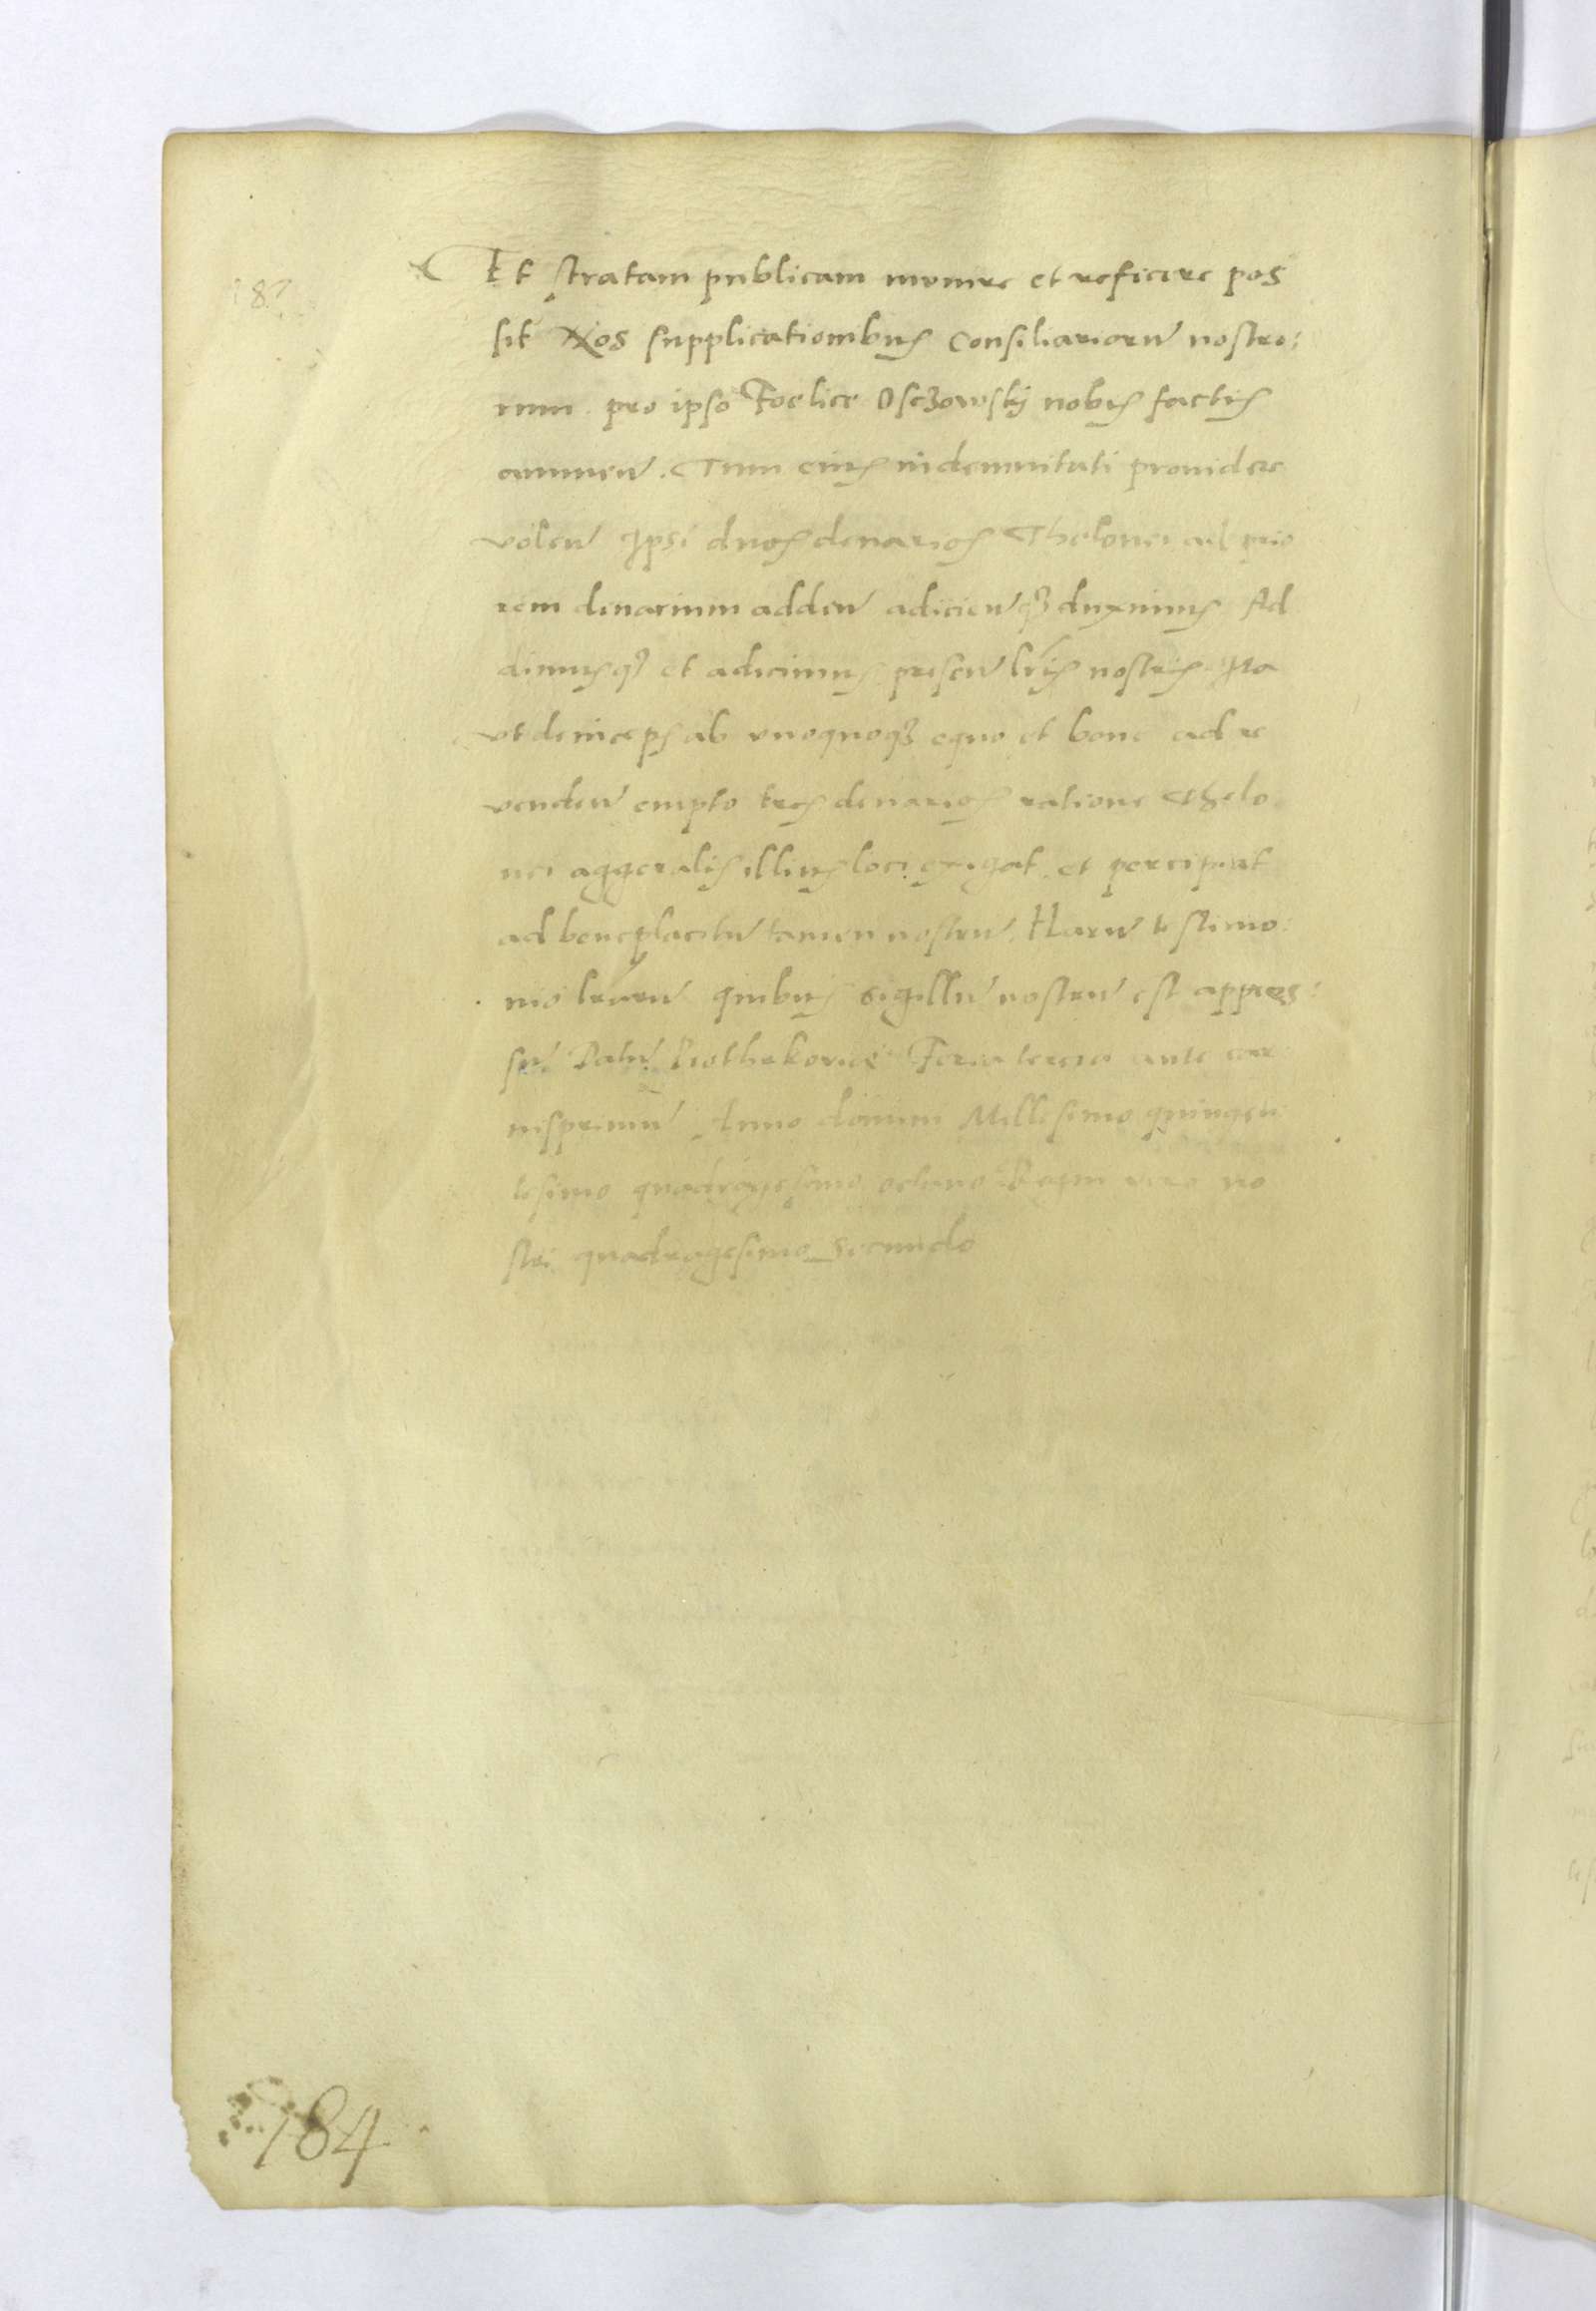 187
Et stratam publicam munire et reficere pos
sit Nos supplicationibus consiliariorũ nostro:
rum pro ipso Foelice Osczowskij nobis factis
annuen̄. Tum eius indemnitati prouidere
volen̄ Ipsi duos denarios Thelonei ad prio
rem denarium adden̄ adiicien̄qȝ duximus Ad
dimusqȝ et adicimus presen̄ lr̃is nostris. Ita
vt deinceps ab vnoquoqȝ equo et boue ad re
venden̄ empto tres denarios ratione thelo
nei aggeralis illius loci exigat et percipiat
ad beneplacitũ tamen nostrũ. Harũ testimo:
nio lr̃arũ quibus sigillũ nostrũ est appres:
sũ. Datũ Piothrkouie Feria tercia ante car
nispriuiũ Anno domini Millesimo quingen
tesimo quadragesimo octauo Regni vero no
stri quadragesimo secundo
184